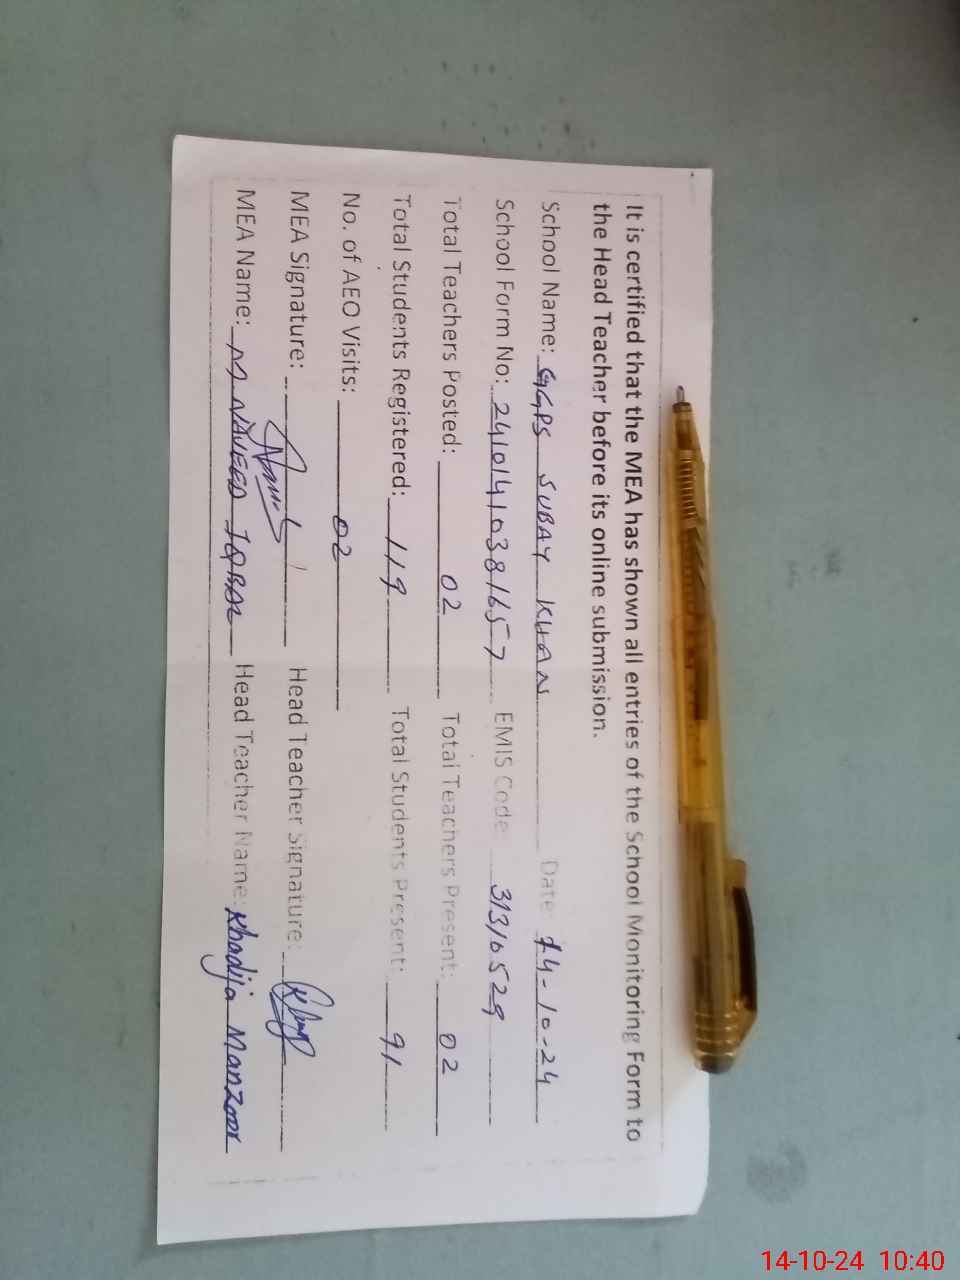 It is certified that the MEA has shown all entries of the School Monitoring Form to
the Head Teacher before its online submission.
School Name: GGPS SUBAY KHAN Date: 14-10-24
School Form No: 24101410381657 EMIS Code 31310529
Total Teachers Posted: 02 Total Teachers Present: 02
Total Students Registered: 119 Total Students Present: 91
No. of AEO Visits: 02
MEA Signature: Head Teacher Signature:
MEA Name: M NAVEED IQBAL Head Teacher Name: Khadija Manzoor
14-10-24 10:40